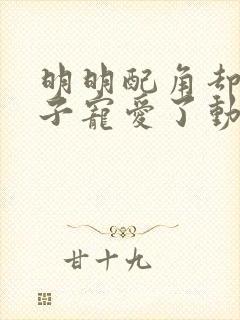 明明配角却
子寵愛了動
甘十九